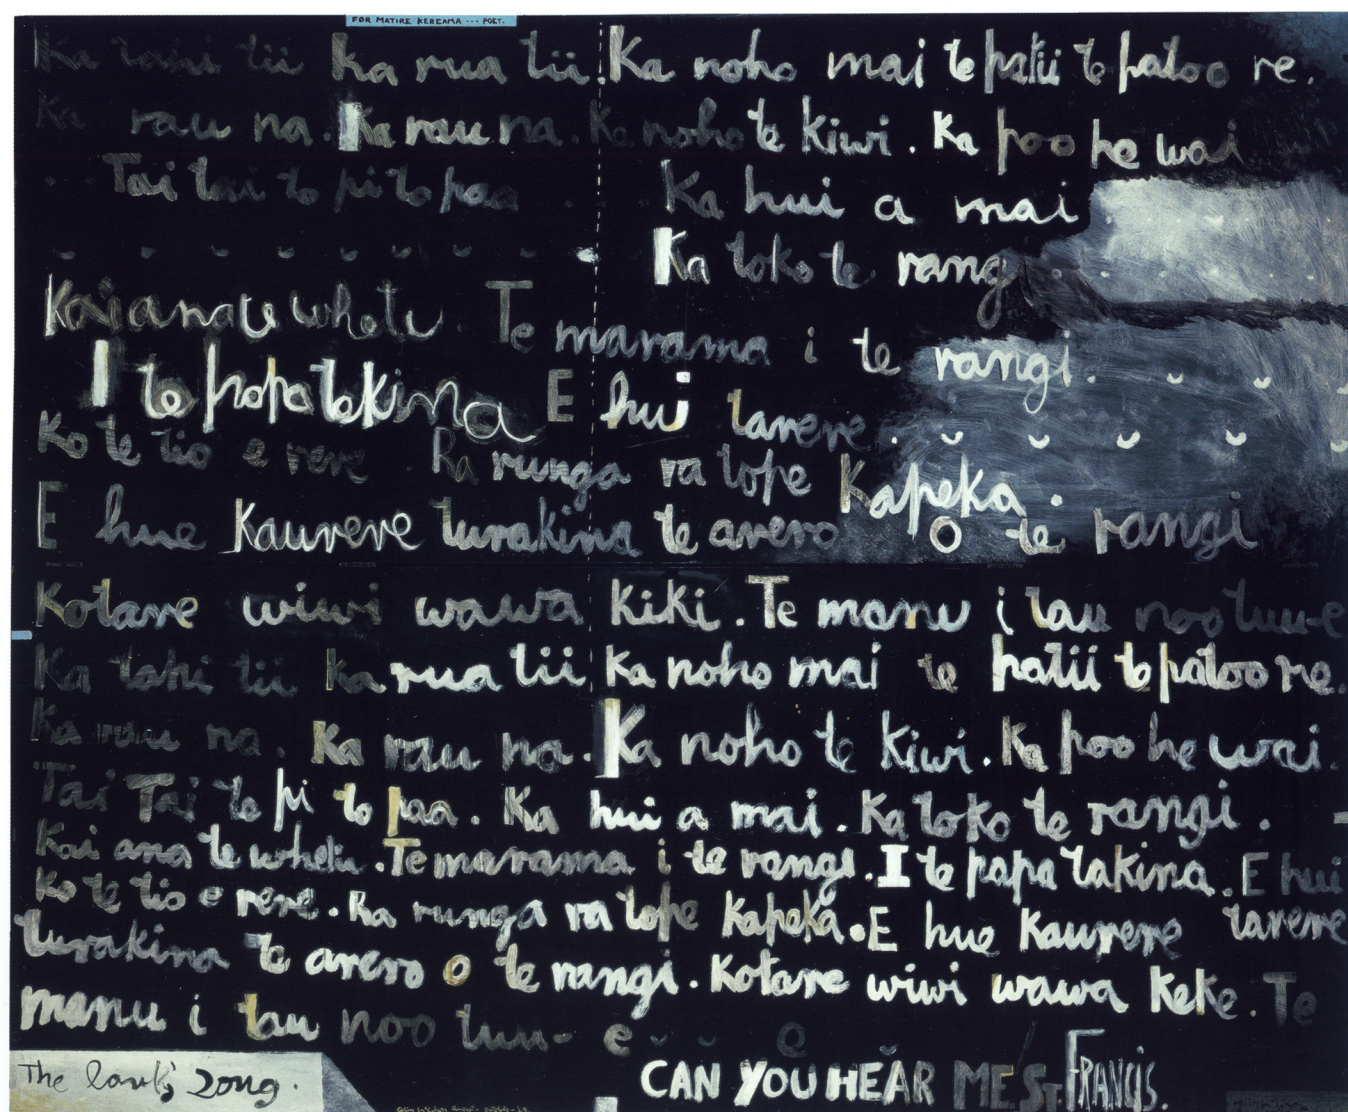 FOR MATIRE KEREAMA ... POET.
Ka tahi tii Ka rua tii. Ka noho mai te patii te patoo re.
Ka rau na. Ka rau na. Ka noho te kiwi. Ka poo he wai
Tai tai to pi to paa Ka hui a mai
Ka toko te rangi
Kai ana te whetu. Te marama i te rangi.
I te papa tekina E hui tarere.
Ko te tio e rere. Ra runga ra tope Kapeka.
E hue Kaurere turakina te arero o te rangi
Kotare wiwi wawa kiki. Te manu i tau noo tuu-e
Ka tahi tii Ka rua tii Ka noho mai te patii to patoo re.
Ka rau na. Ka rau na. Ka noho te kiwi. Ka poo he wai.
Tai Tai to pi to paa. Ka hui a mai. Ka toko te rangi.
Kai ana te whetu. Te marama i te rangi. I te papa takina. E hui
Ko te tio e rere. Ra runga ra tope Kapeka. E hue Kaurere tarere
turakina te arero o te rangi. Kotare wiwi wawa Keke. Te
manu i tau noo tuu- e e
The lark's song.
CAN YOU HEAR ME ST. FRANCIS.